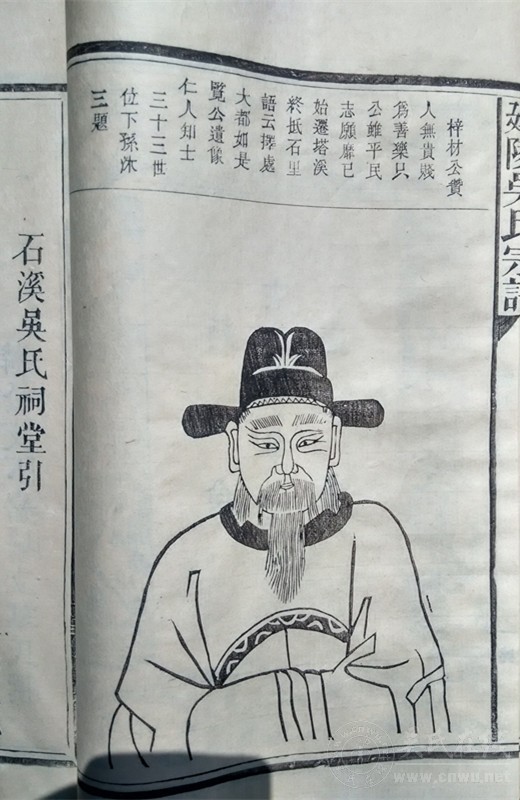 延陵吳氏宗譜
梓材公贊
人無貴賤
爲善樂只
公雖平民
志願靡已
始遷塔溪
終抵石里
語云擇處
大都如是
覽公遺像
仁人知士
三十三世
位下孫沐
三題
石溪吳氏祠堂引